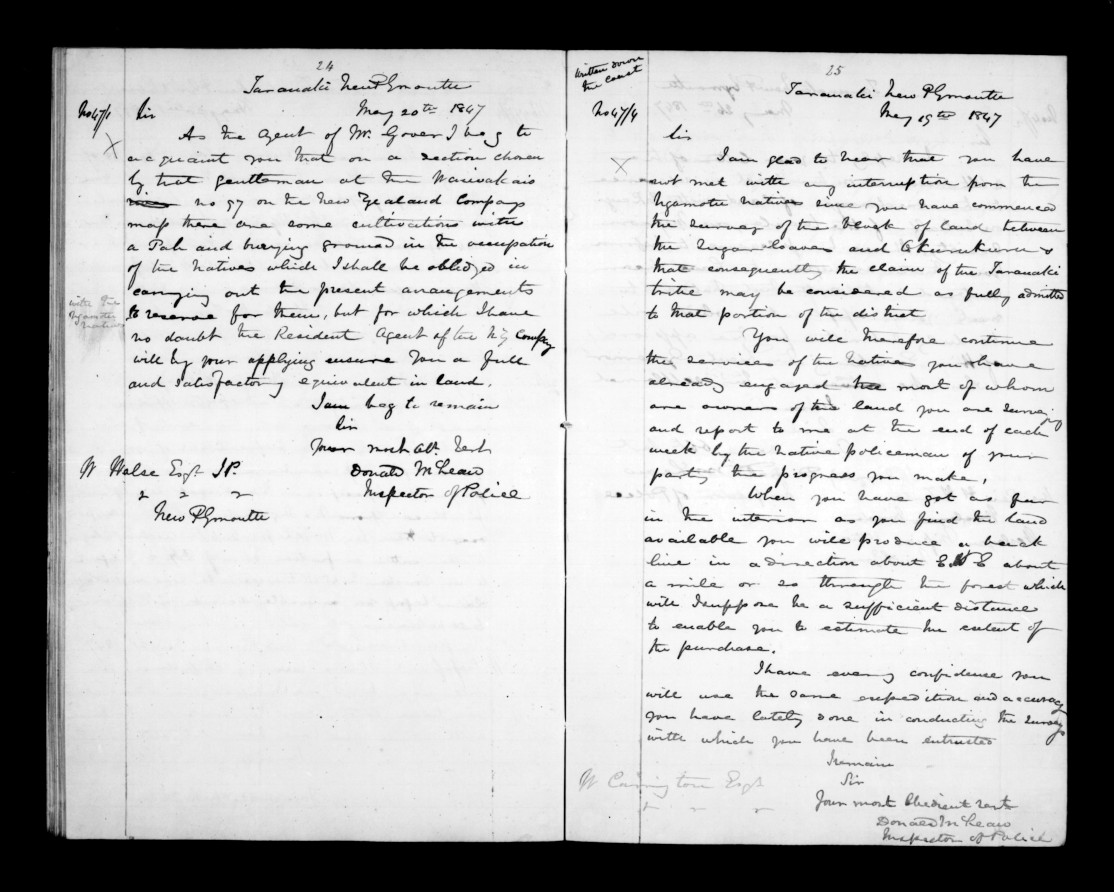 24
Taranaki New Plymouth
No 47/1 Sir May 20th 1847
As the Agent of Mr. Gover I beg to
acquaint you that on a section chosen
by that gentleman at the Waiwakaio
no 97 on the New Zealand Companys
map there are some cultivations with
a Pah and burying ground in the occupation
of the Natives which I shall be oblidged in
carrying out the present arrangements
with the Ngamotu Natives
to reserve for them, but for which I have
no doubt the Resident Agent of the NZ Company
will by your applying ensure you a full
and satisfactory equivalent in land.
I am beg to remain
Sir
Your most obt. Servt
W Halse Esqr J.P. Donald McLean
" " " Inspector of Police
New Plymouth
written down the Coast
25
Taranaki New Plymouth
No 47/4 May 19th 1847
Sir
I am glad to hear that you have
not met with any interruption from the
Ngamotu natives since you have commenced
the survey of the block of land between
the Sugarloaves and Okurukuru &
that consequently the claim of the Taranaki
tribe may be considered as fully admitted
to that portion of the district
You will therefore continue
the services of the Natives you have
already engaged most of whom
are owners of the land you are surveying
and report to me at the end of each
week by the native policeman of your
party the progress you make,
When you have got as far
in the interior as you find the land
available you will produce a back
line in a direction about E N E about
a mile or so through the forest which
will I suppose be a sufficient distance
to enable you to estimate the extent of
the purchase.
I have every confidence you
will use the same expedition and accuracy
you have lately done in conducting the surveys
with which you have been entrusted
I remain
Sir
W Carrington Esqr
" " " Your most Obedient Servt
Donald McLean
Inspector of Police